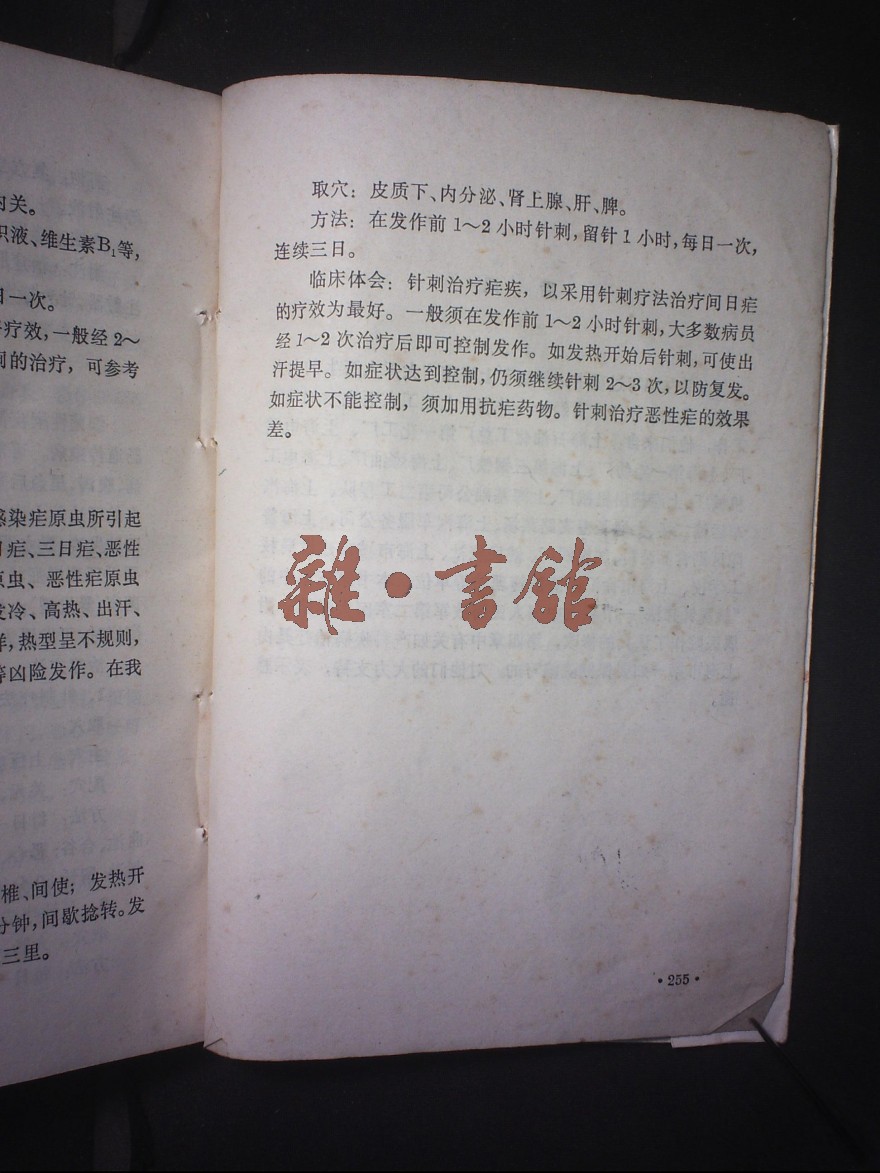 内关。
织液、维生素B₁等,
日一次。
疗效,一般经2～
的治疗，可参考
感染疟原虫所引起
日疟、三日疟、恶性
原虫、恶性疟原虫
发冷、高热、出汗、
样,热型呈不规则,
等凶险发作。在我
椎、间使；发热开
分钟,间歇捻转。发
三里。
取穴：皮质下、内分泌、肾上腺、肝、脾。
方法：在发作前1～2小时针刺,留针1小时,每日一次,
连续三日。
临床体会：针刺治疗疟疾，以采用针刺疗法治疗间日疟
的疗效为最好。一般须在发作前1～2小时针刺,大多数病员
经1～2次治疗后即可控制发作。如发热开始后针刺,可使出
汗提早。如症状达到控制,仍须继续针刺2～3次,以防复发。
如症状不能控制，须加用抗疟药物。针刺治疗恶性疟的效果
差。
雜·書館
·255·